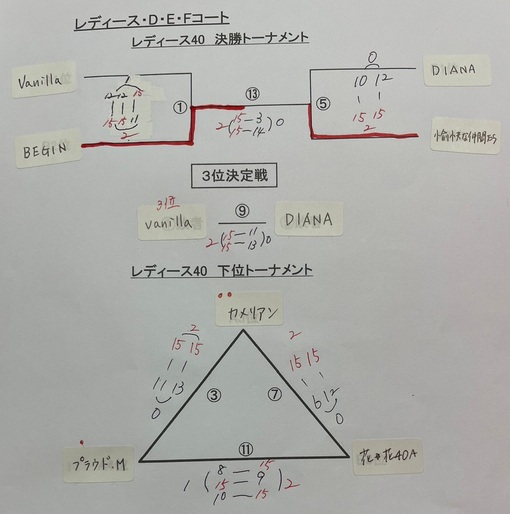 レディース・D・E・Fコート
レディース40 決勝トーナメント
Vanilla
1
12 12 15
15 15 11
2
①
BEGIN
⑬
2(15-3 15-14)0
⑤
0
10 12
15 15
2
DIANA
3位決定戦
3位
vanilla
⑨
2(15-11 15-13)0
DIANA
レディース40 下位トーナメント
カメリアン
2
15 15
11 13
0
③
2
15 15
6 12
0
⑦
プラウド.M
⑪
1(8-15 15-9 10-15)2
花*花40A